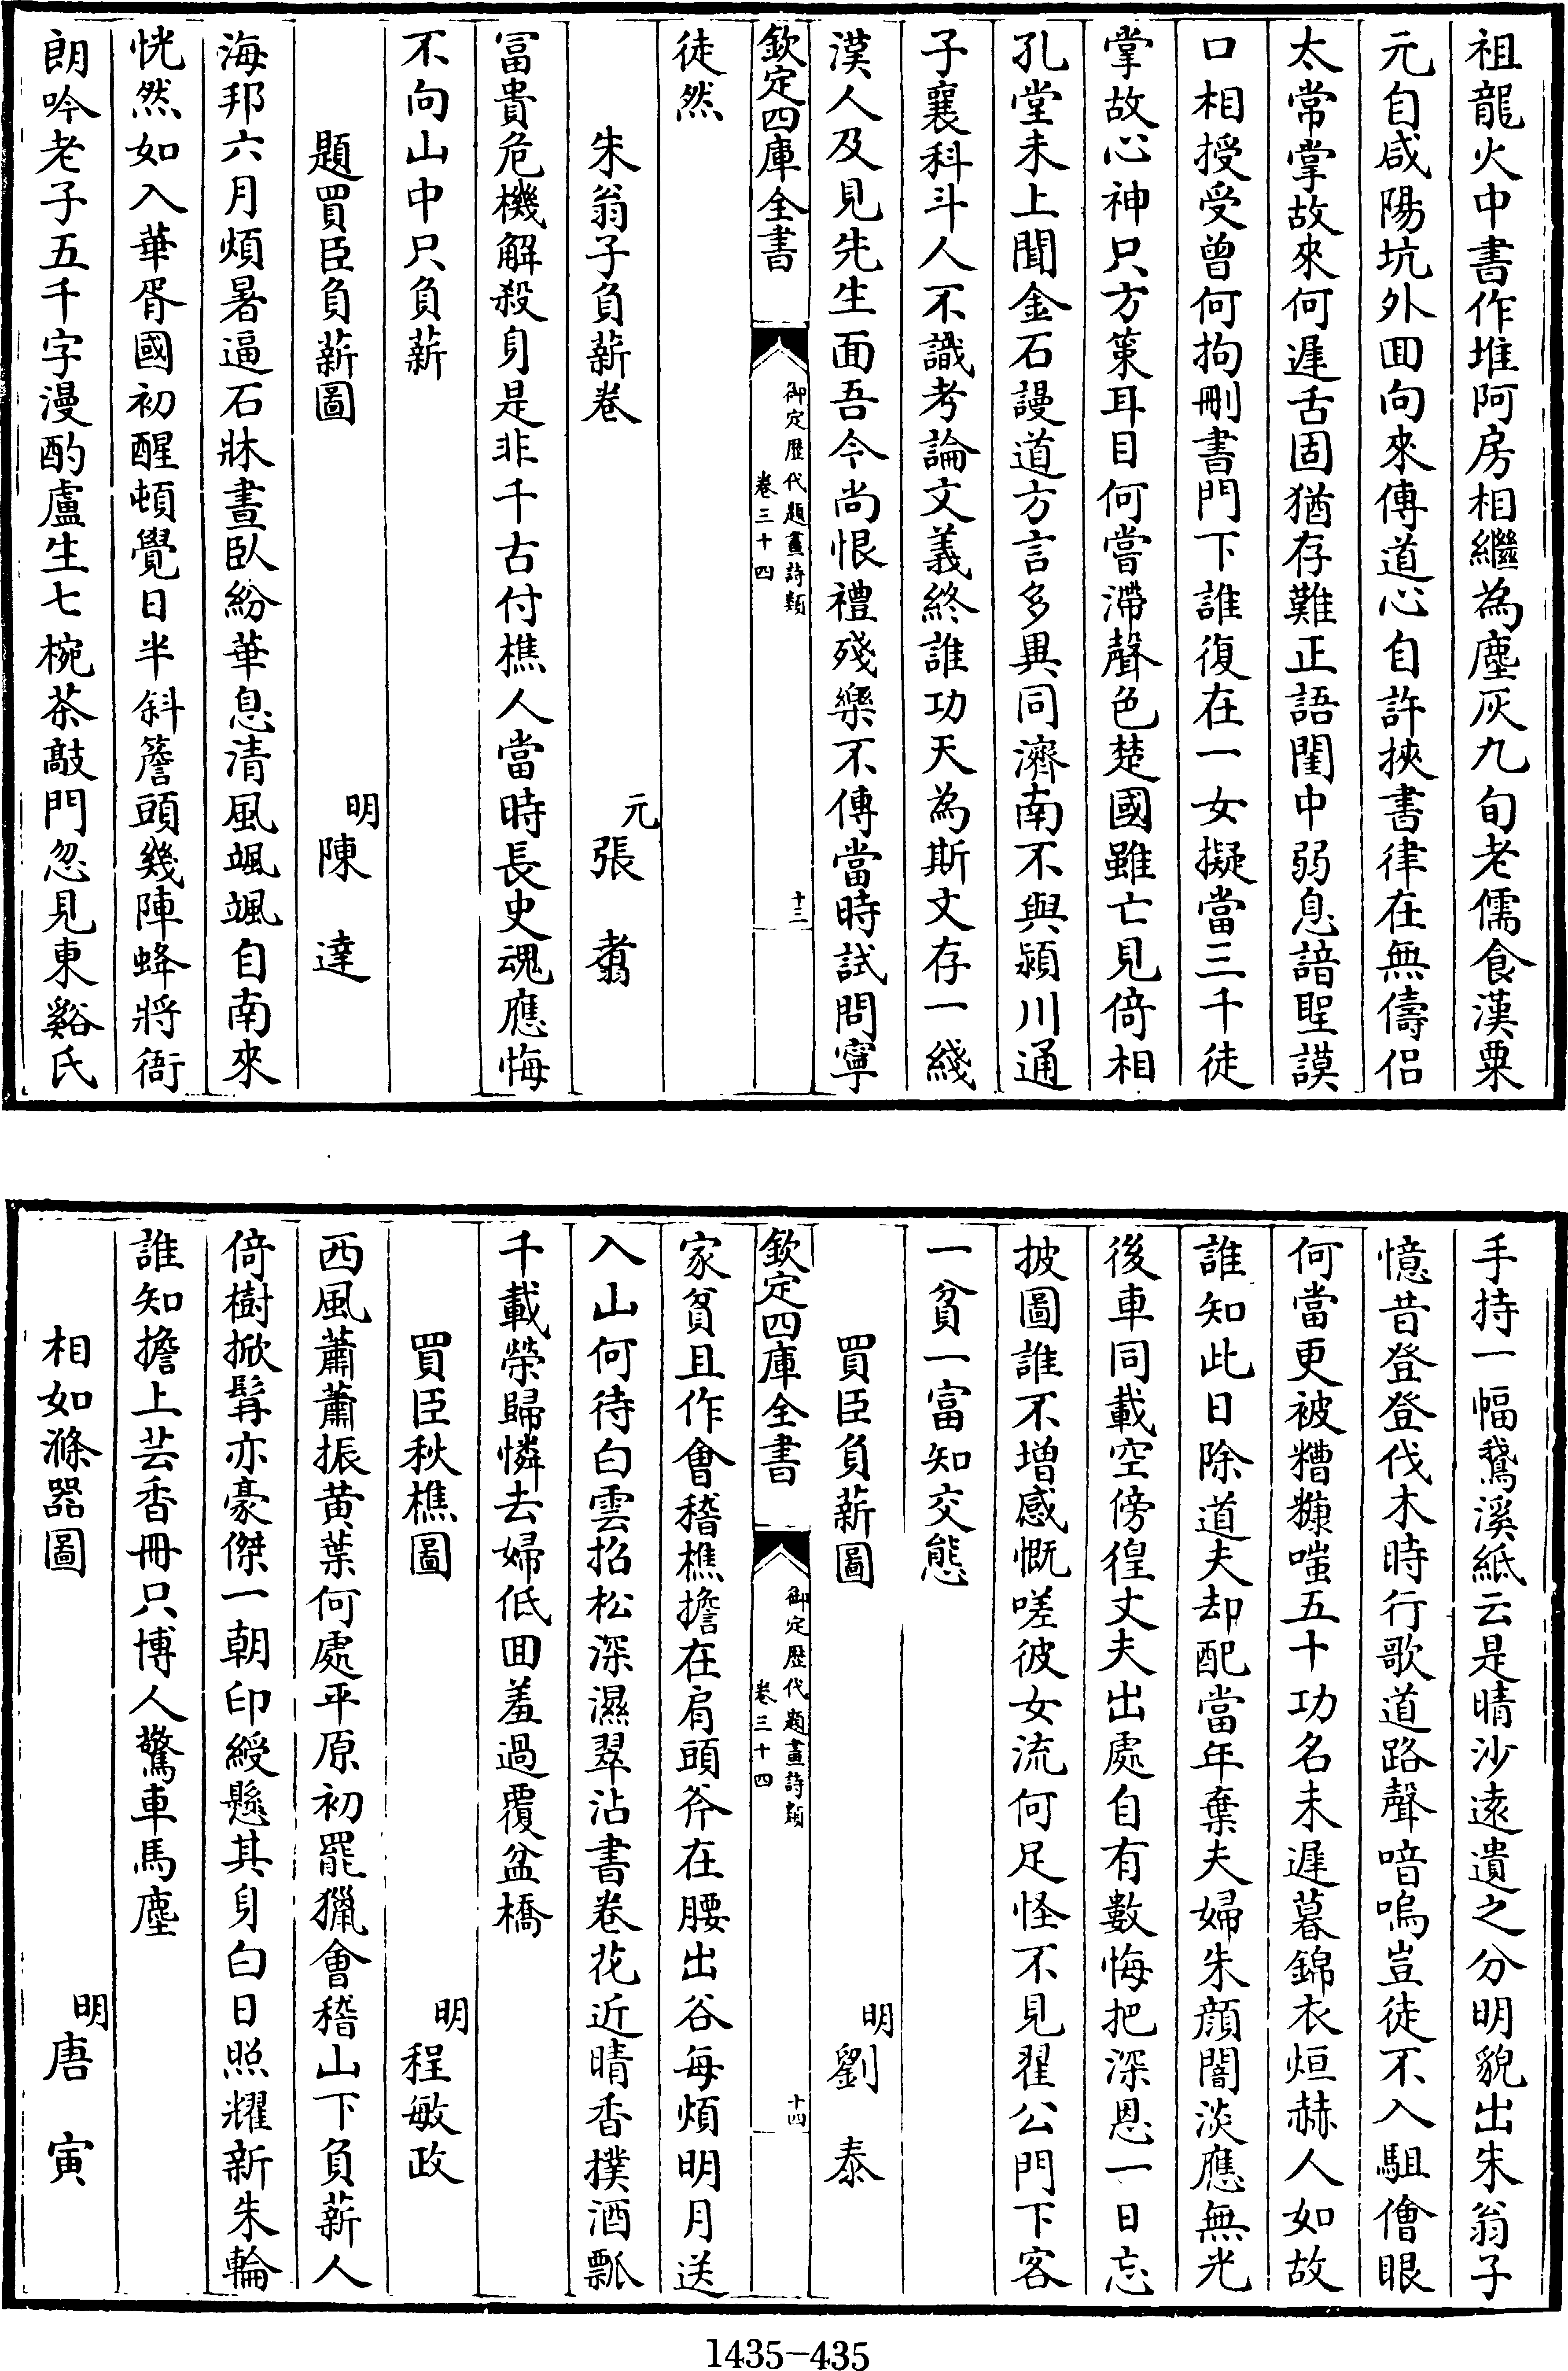 祖龍火中書作堆阿房相繼為塵灰九旬老儒食漢粟
元自咸陽坑外囬向來傳道心自許挾書律在無儔侣
太常掌故來何遲舌固猶存難正語閨中弱息諳聖謨
口相授受曾何拘刪書門下誰復在一女擬當三千徒
掌故心神只方策耳目何嘗滯聲色楚國雖亡見倚相
孔堂未上聞金石謾道方言多異同濟南不與潁川通
子襄科斗人不識考論文義終誰功天為斯文存一綫
漢人及見先生面吾今尚恨禮殘樂不傳當時試問寧
欽定四庫全書
御定歴代題畫詩類
卷三十四
十三
徒然
朱翁子負薪卷 元張翥
冨貴危機解殺身是非千古付樵人當時長史魂應悔
不向山中只負薪
題買臣負薪圖 明陳達
海邦六月煩暑逼石牀晝臥紛華息清風颯颯自南來
恍然如入華胥國初醒頓覺日半斜簷頭幾陣蜂將衙
朗吟老子五千字漫酌盧生七椀茶敲門忽見東谿氏
手持一幅鵞溪紙云是晴沙遠遺之分明貌出朱翁子
憶昔登登伐木時行歌道路聲喑嗚豈徒不入駔儈眼
何當更被糟糠嗤五十功名未遲暮錦衣烜赫人如故
誰知此日除道夫却配當年棄夫婦朱顔闇淡應無光
後車同載空傍徨丈夫出處自有數悔把深恩一日忘
披圖誰不増感慨嗟彼女流何足怪不見翟公門下客
一貧一富知交態
買臣負薪圖 明劉泰
欽定四庫全書
御定歴代題畫詩類
卷三十四
十四
家貧且作會稽樵擔在肩頭斧在腰出谷每煩明月送
入山何待白雲招松深濕翠沾書卷花近晴香撲酒瓢
千載榮歸憐去婦低囬羞過覆盆橋
買臣秋樵圖 明程敏政
西風蕭蕭振黄葉何處平原初罷獵會稽山下負薪人
倚樹掀髯亦豪傑一朝印綬懸其身白日照耀新朱輪
誰知擔上芸香冊只博人驚車馬塵
相如滌器圖 明唐寅
1435-435